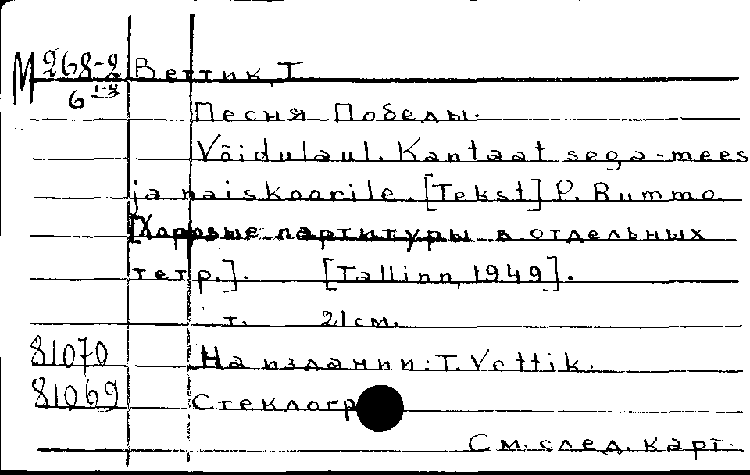 М 268-2 Веттик, Т.
6 1-2
Песня Победы.
Võidulaul. Kantaat sega-mees
ja naiskoorile. [Tekst] P. Rummo.
[Хоровые партитуры в отдельных
тетр.]. [Tallinn, 1949].
т. 21 см.
81070 На издании: T. Vettik.
81069 Стеклогр
См. след. карт.